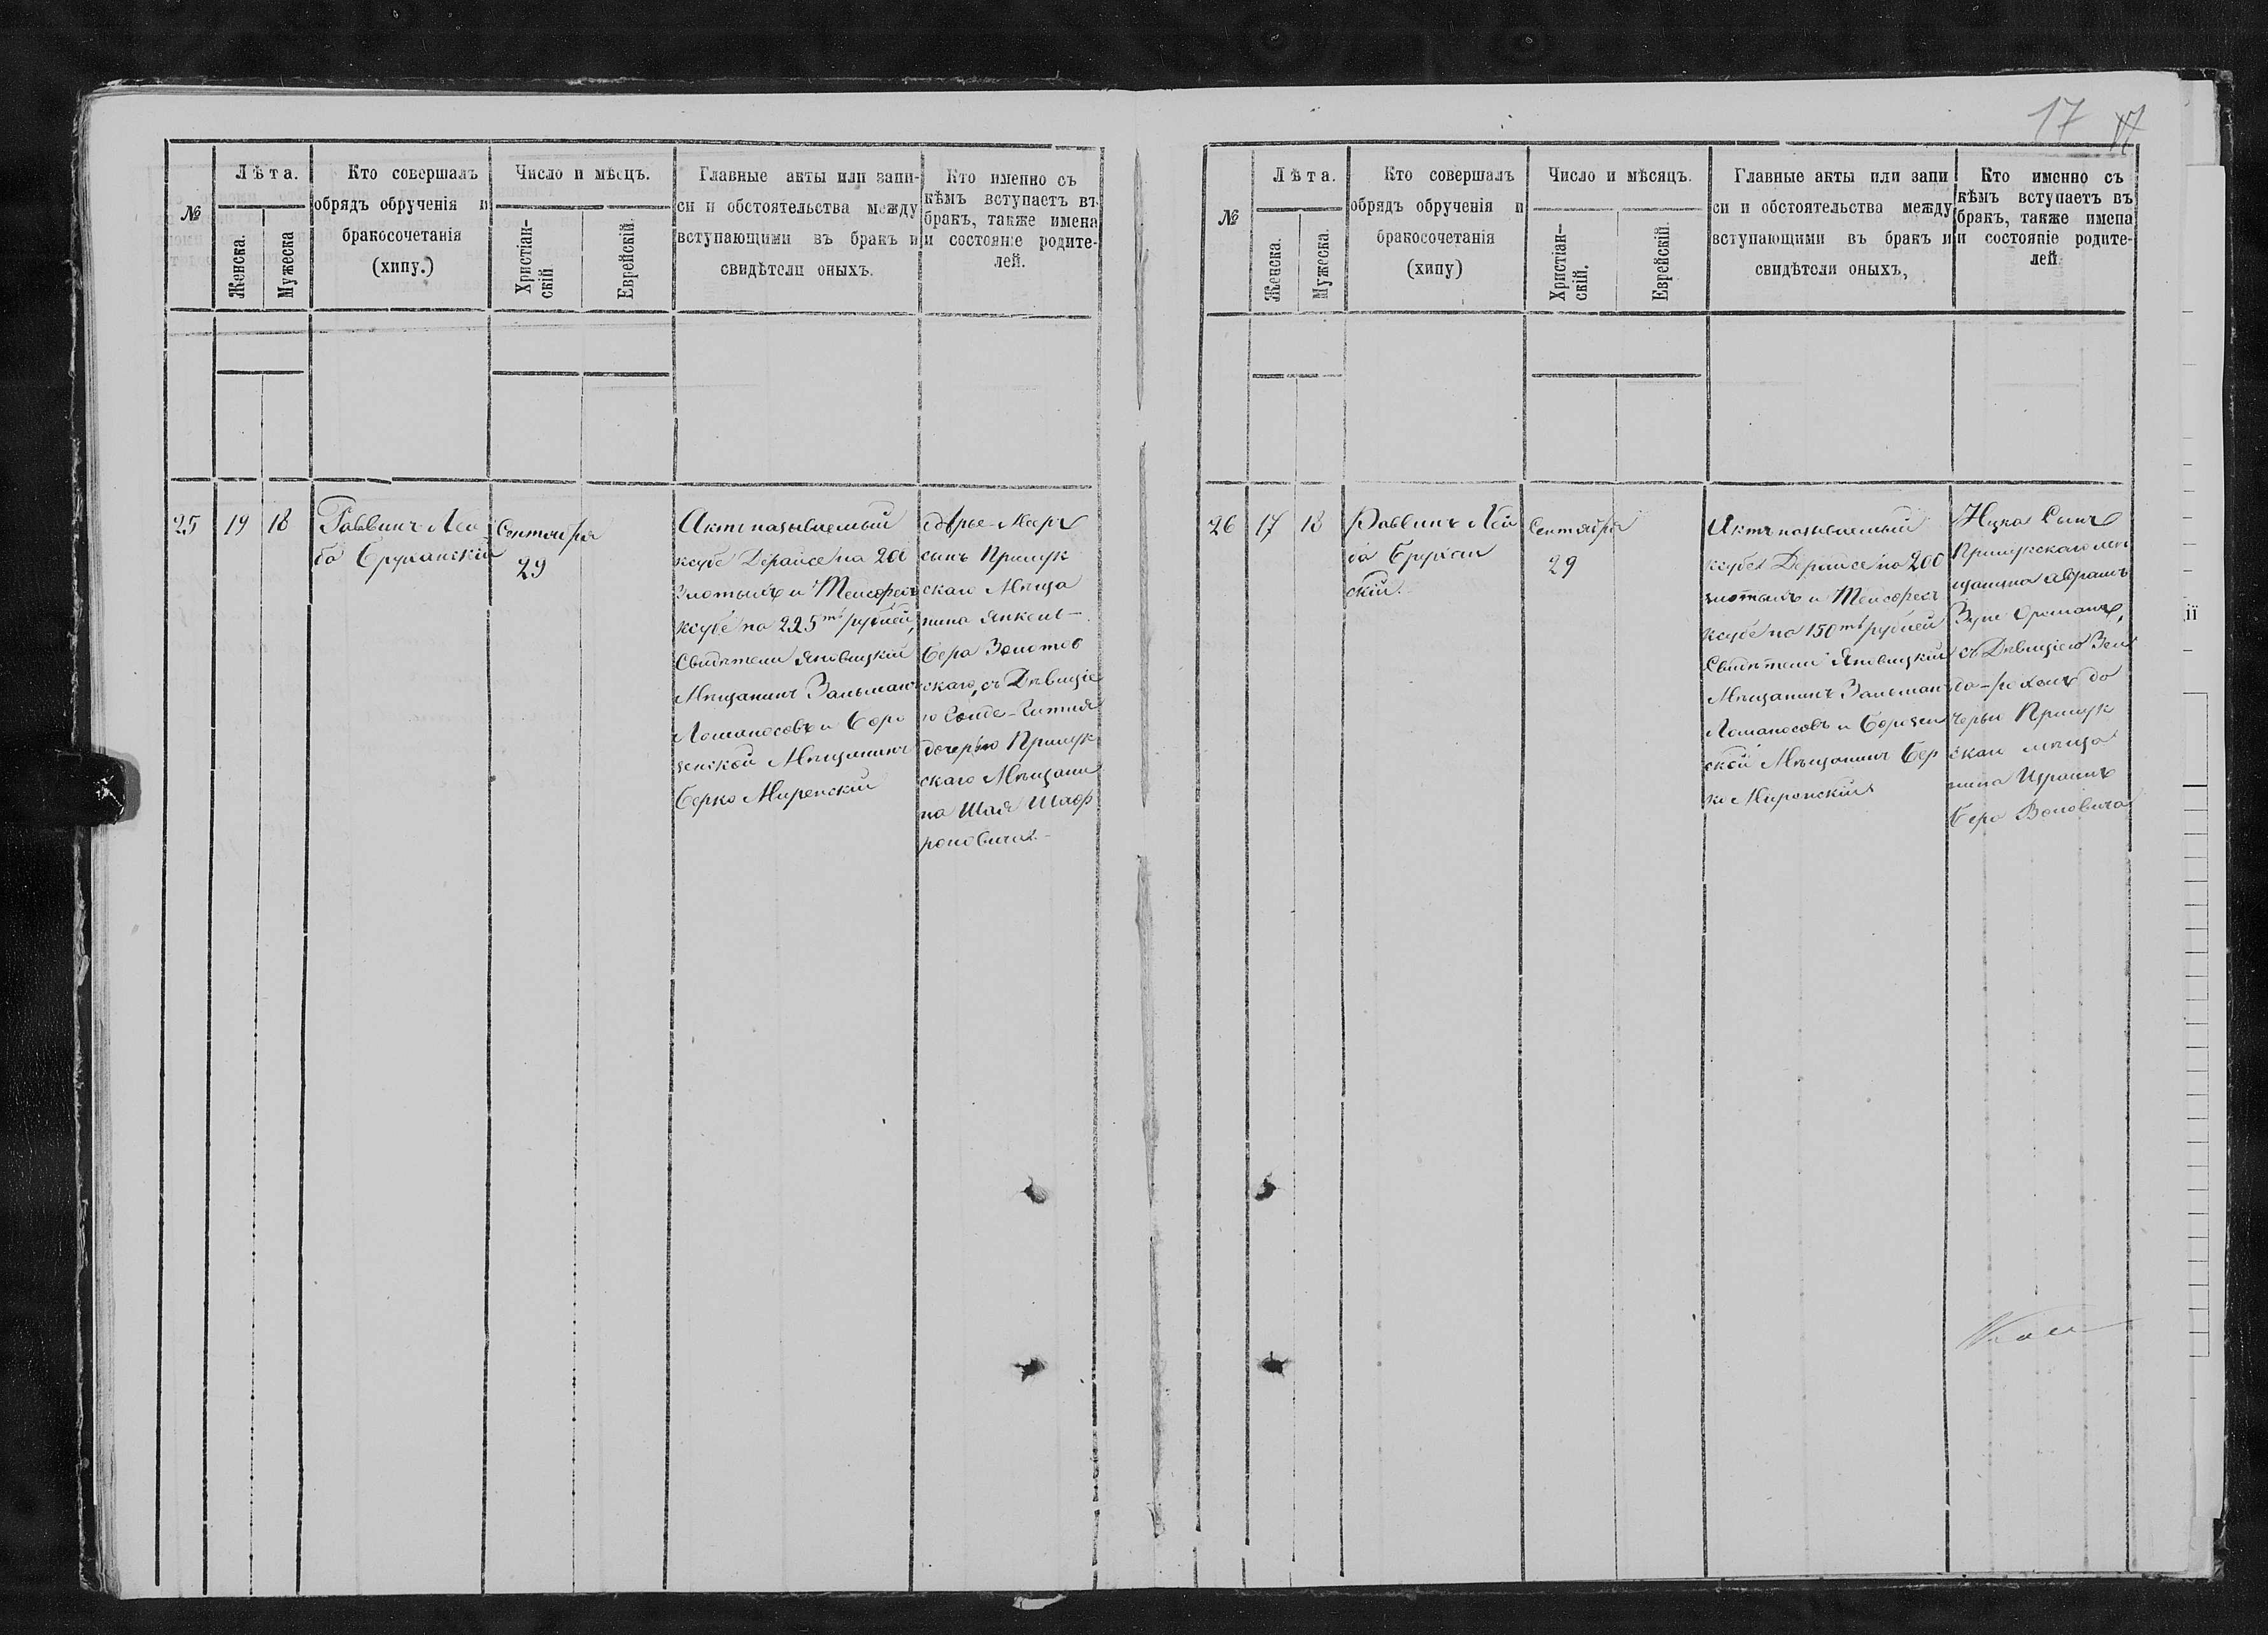 17
№
Лѣта.
Женска.
Мужеска
Кто совершалъ
обрядъ обрученія и
бракосочетанія
(хипу.)
Число и мѣсцъ.
Христіан-
скій
Еврейскій.
Главные акты или запи-
си и обстоятельства между
вступающими въ бракъ и
свидѣтели оныхъ.
Кто именно съ
кѣмъ вступаетъ въ
бракъ, также имена
и состояніе родите-
лей.
25
19
18
Раввинъ Лей
ба Бруханскій
Сентября
29
Актъ называемый
ксубе Дерайсе на 200
злотыхъ и Тейсфесъ
ксубе на 225тъ рублей,
Свидѣтели Яновицкій
Мѣщанинъ Зальманъ
Ломаносовъ и Бере
зенской Мѣщанинъ
Берко Миренскій
Арье-Мееръ
сынъ Прилук
скаго Мѣща
нина Янкель-
Бера Золотов
скаго, съ Дѣвицiе
ю
дочерью Прилук
скаго Мѣщани
на Шая Шаф
роновича.-
№
Лѣта.
Женска.
Мужеска.
Кто совершалъ
обрядъ обрученія и
бракосочетанія
(хипу)
Число и мѣсяцъ.
Христіан-
скій.
Еврейскій.
Главные акты или запи
си и обстоятельства между
вступающими въ бракъ и
свидѣтели оныхъ,
Кто именно съ
кѣмъ вступаетъ въ
бракъ, также имена
и состояніе родите-
лей
26
17
18
Раввинъ Лей
ба Брухан
скій.
Сентября
29
Актъ называемый
ксубе Дерайсе на 200
злотыхъ и Тейсфесъ
ксубе на 150тъ рублей
Свидѣтели Яновицкій
Мѣщанинъ Зальманъ
Ломаносовъ и Березен
ской Мѣщанинъ Бер
ко Миронскій
Ицка Сынъ
Прилукскаго мѣ
щанина Абрамъ
съ Дѣвицiею Зел
да- до
черью Прилук
скаго мѣща
нина Израиль
Бера Воловича
ії